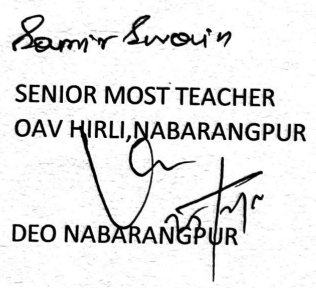 Samir Swain
SENIOR MOST TEACHER
OAV HIRLI,NABARANGPUR
DEO NABARANGPUR